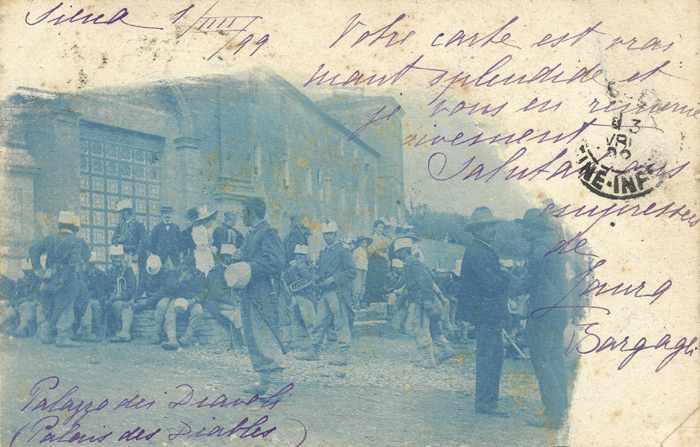 Siena 1/IIII/99
Votre carte est vrai
mant splendide et
je vous en remercie
vivement
Salutations
empressées
de
Laura
Bargagli
INE-INF
Palazzo dei Diavoli
(Palais des Diables)